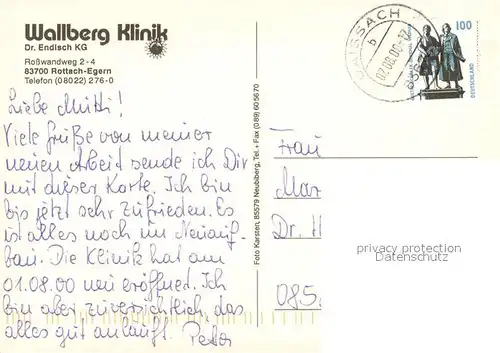 Wallberg Klinik
Dr. Endisch KG
Roßwandweg 2 - 4
83700 Rottach-Egern
Telefon (08022) 276-0
Liebe Mutti!
Viele Grüße von meiner
neuen Arbeit sende ich Dir
mit dieser Karte. Ich bin
bis jetzt sehr zufrieden. Es
ist alles noch im Neuauf-
bau. Die Klinik hat am
01.08.00 neu eröffnet. Ich
bin aber zuversichtlich, das
alles gut anläuft. Peter
Foto Karsten, 85579 Neubiberg, Tel. + Fax (089) 605670
WAISSACH
b
02.08.00
100
DEUTSCHLAND
Frau
Mar
Dr. H
085
privacy protection
Datenschutz